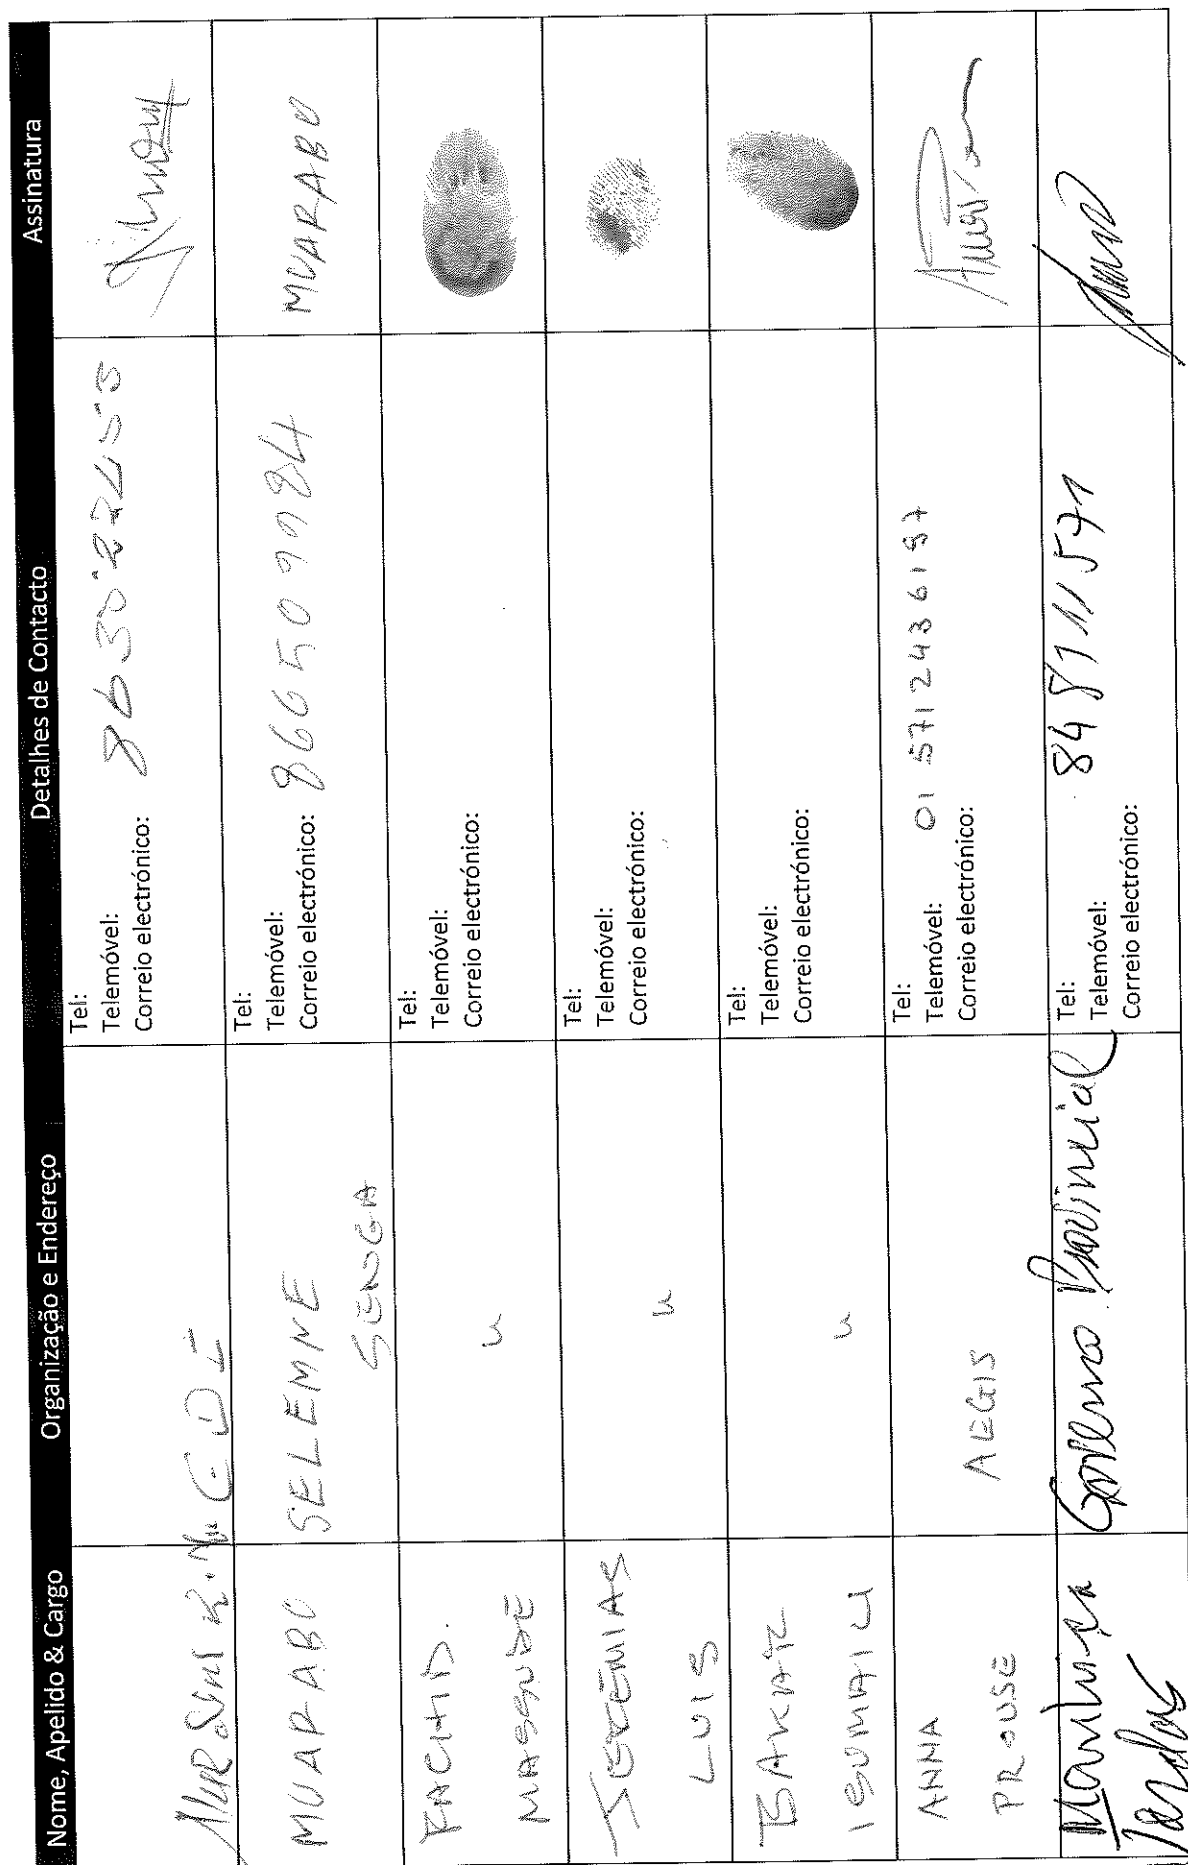 Nome, Apelido & Cargo Organização e Endereço Detalhes de Contacto Assinatura
Tel:
Telemóvel:
Correio electrónico:
MUARABO SELEMNE
SENGA
Tel:
Telemóvel:
Correio electrónico: 866509984
MUARABO
RACHID.
MASSUDE
u
Tel:
Telemóvel:
Correio electrónico:
JEREMIAS
LUIS
u
Tel:
Telemóvel:
Correio electrónico:
BAKAR
ISUMAILI
u
Tel:
Telemóvel:
Correio electrónico:
ANNA
PROUSE
AEGIS
Tel:
Telemóvel: 01 5712436187
Correio electrónico:
Governo Provincial
Tel: 848711571
Telemóvel:
Correio electrónico: